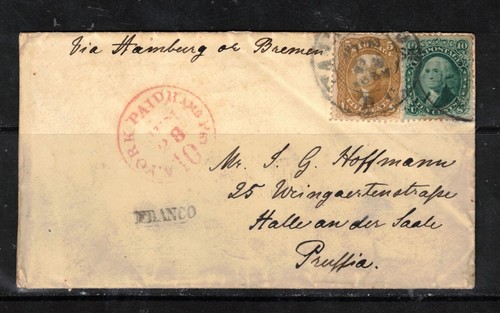 Via Hamburg or Bremen
N. YORK PAID HAMB PKT
8
10
5
10 10
POSTAGE
FRANCO
Mr. I. G. Hoffmann
25 Weingaertenstraße
Halle an der Saale
Preußia.